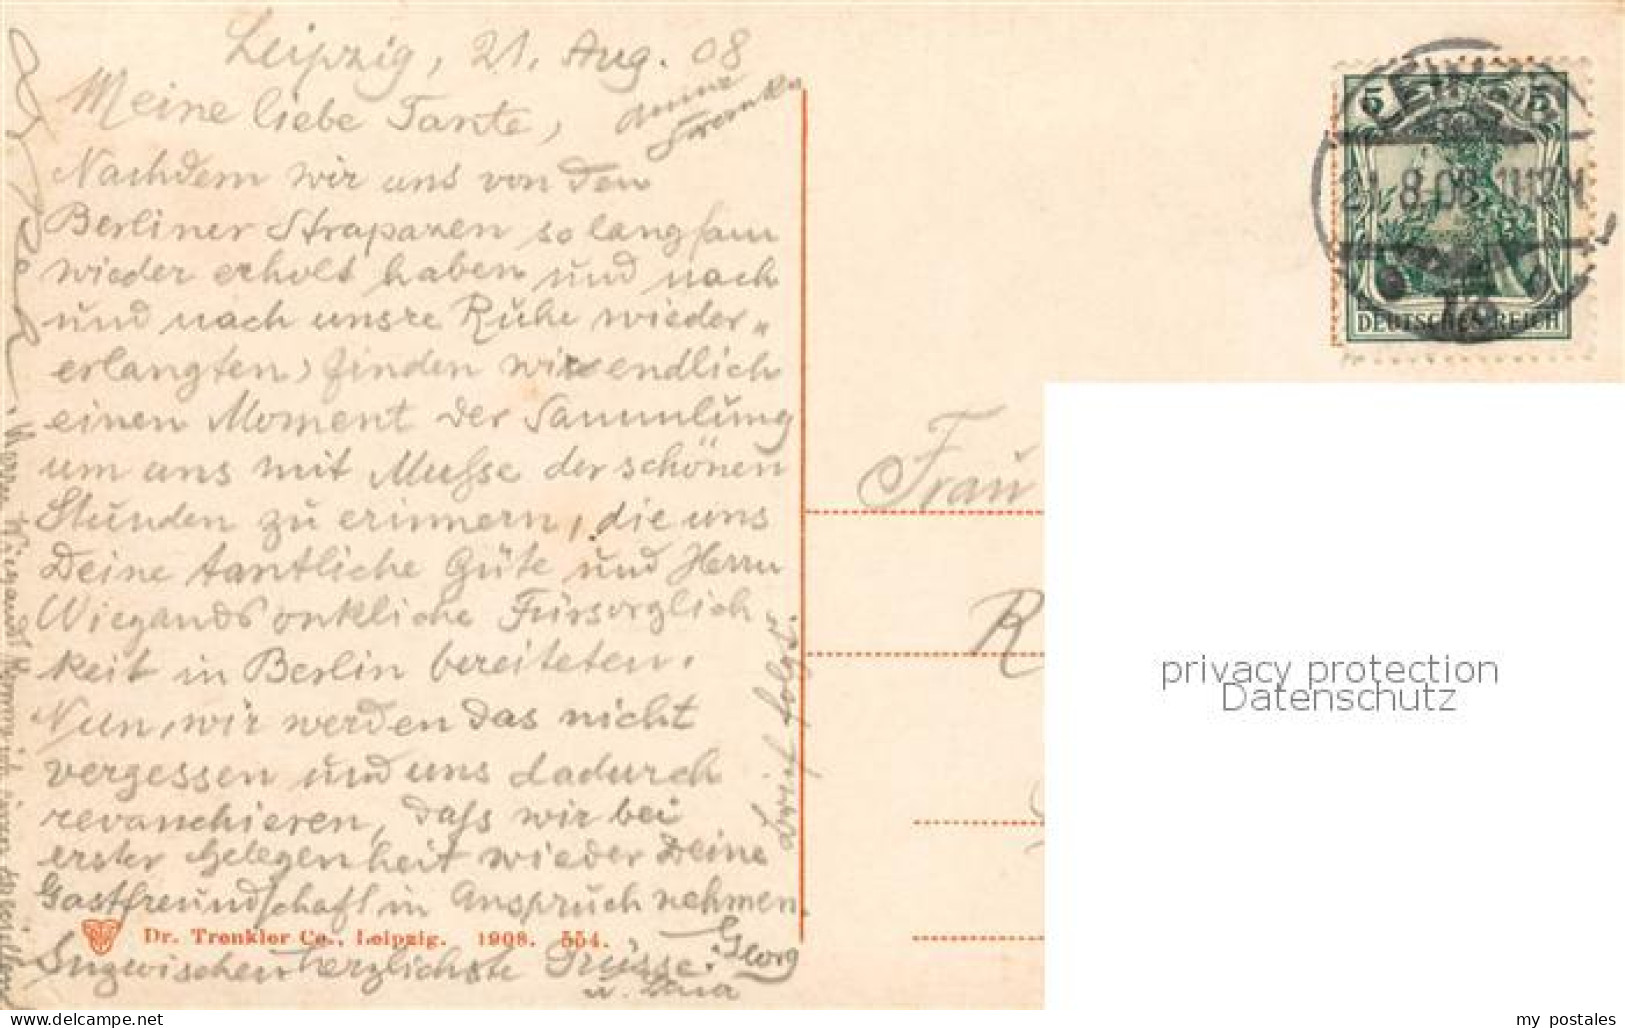 Leipzig, 21. Aug. 08
Meine liebe Tante,
Nachdem wir uns von den
Berliner Strapazen so langsam
wieder erholt haben und nach
und nach unsre Ruhe wieder-
erlangten, finden wir endlich
einen Moment der Sammlung
um uns mit Musse der schönen
Stunden zu erinnern, die uns
Deine tantliche Güte und Herrn
Wiegands onkliche Fürsorglich-
keit in Berlin bereiteten.
Nun, wir werden das nicht
vergessen und uns dadurch
revanchieren, dass wir bei
erster Gelegenheit wieder Deine
Gastfreundschaft in Anspruch nehmen.
Dr. Trenkler Co., Leipzig. 1908. 554.
Inzwischen herzlichste Grüsse:
Georg
u.
Brief folgt.
Frau
R
LEIPZIG
21.8.08.
13
5 5
DEUTSCHES REICH
privacy protection
Datenschutz
delcampe.net
my_postales